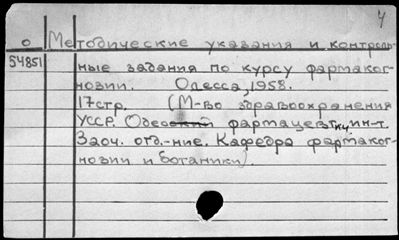 4
о Методические указания и контроль-
54851 ные задания по курсу фармаког-
нозии. Одесса, 1958.
17стр. (М-во здравоохранения
УССР. Одесский фармацевтич. ин-т.
Заоч. отд.-ние. Кафедра фармаког-
нозии и ботаники).